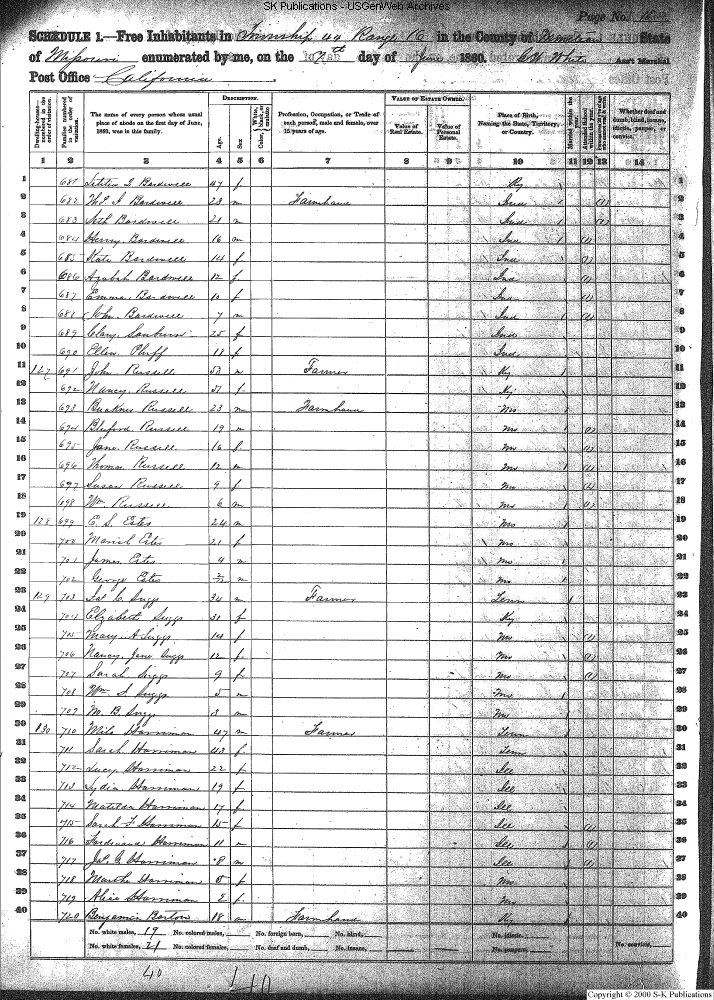 SK Publications - USGenWeb Archives
Page No.
SCHEDULE 1.—Free Inhabitants in Township 44 Range 16 in the County of Moniteau State
of Missouri enumerated by me, on the 7th day of June 1860. White Ass't Marshal
Post Office California
Dwelling-houses—numbered in the order of visitation.
Families numbered in the order of visitation.
The name of every person whose usual place of abode on the first day of June, 1860, was in this family.
DESCRIPTION.
Age.
Sex.
Color, White, black, or mulatto
Profession, Occupation, or Trade of each person, male and female, over 15 years of age.
VALUE OF ESTATE OWNED.
Value of Real Estate.
Value of Personal Estate.
Place of Birth, Naming the State, Territory, or Country.
Married within the year.
Attended School within the year.
Whether deaf and dumb, blind, insane, idiotic, pauper, or convict.
1 2 3 4 5 6 7 8 9 10 11 12 13 14
1 681 Bardwell 47 f Ky 1
2 682 Bardwell 23 m Farmhand Ind 2
3 683 Seth Bardwell 21 m Ind 3
4 684 Henry Bardwell 16 m Ind 4
5 685 Kate Bardwell 14 f Ind 5
6 686 Bardwell 12 f Ind 6
7 687 Emma Bardwell 10 f Ind 7
8 688 John Bardwell 7 m Ind 8
9 689 Clary 25 f Ind 9
10 690 Ellen 18 f Ind 10
11 127 691 John Russell 53 m Farmer Ky 11
12 692 Nancy Russell 51 f Ky 12
13 693 Buckner Russell 23 m Farmhand Mo 13
14 694 Bluford Russell 19 m Mo 14
15 695 Jane Russell 16 f Mo 15
16 696 Thomas Russell 12 m Mo 16
17 697 Susan Russell 9 f Mo 17
18 698 Wm Russell 6 m Mo 18
19 128 699 E. S. Estes 24 m Mo 19
20 700 Estes 21 f Mo 20
21 701 James Estes 4 m Mo 21
22 702 George Estes m Mo 22
23 129 703 Suggs 34 m Farmer Tenn 23
24 704 Elizabeth Suggs 31 f Ky 24
25 705 Mary A Suggs 14 f Mo 25
26 706 Nancy Jane Suggs 12 f Mo 26
27 707 Sarah Suggs 9 f Mo 27
28 708 Wm S Suggs 5 m Mo 28
29 709 M. B. Suggs 3 m Mo 29
30 130 710 Milo Harriman 47 m Farmer Tenn 30
31 711 Sarah Harriman 43 f Tenn 31
32 712 Lucy Harriman 22 f Ill 32
33 713 Lydia Harriman 19 f Ill 33
34 714 Matilda Harriman 17 f Ill 34
35 715 Sarah F Harriman 15 f Ill 35
36 716 Ferdinand Harriman 11 m Ill 36
37 717 Jas. G Harriman 8 m Ill 37
38 718 Martha Harriman 5 f Mo 38
39 719 Alice Harriman 2 f Mo 39
40 720 Benjamin Barton 18 m Farmhand 40
No. white males, 19 No. colored males, No. foreign born, No. blind, No. idiotic,
No. white females, 21 No. colored females, No. deaf and dumb, No. insane, No. paupers, No. convicts,
40
40
Copyright © 2000 S-K Publications